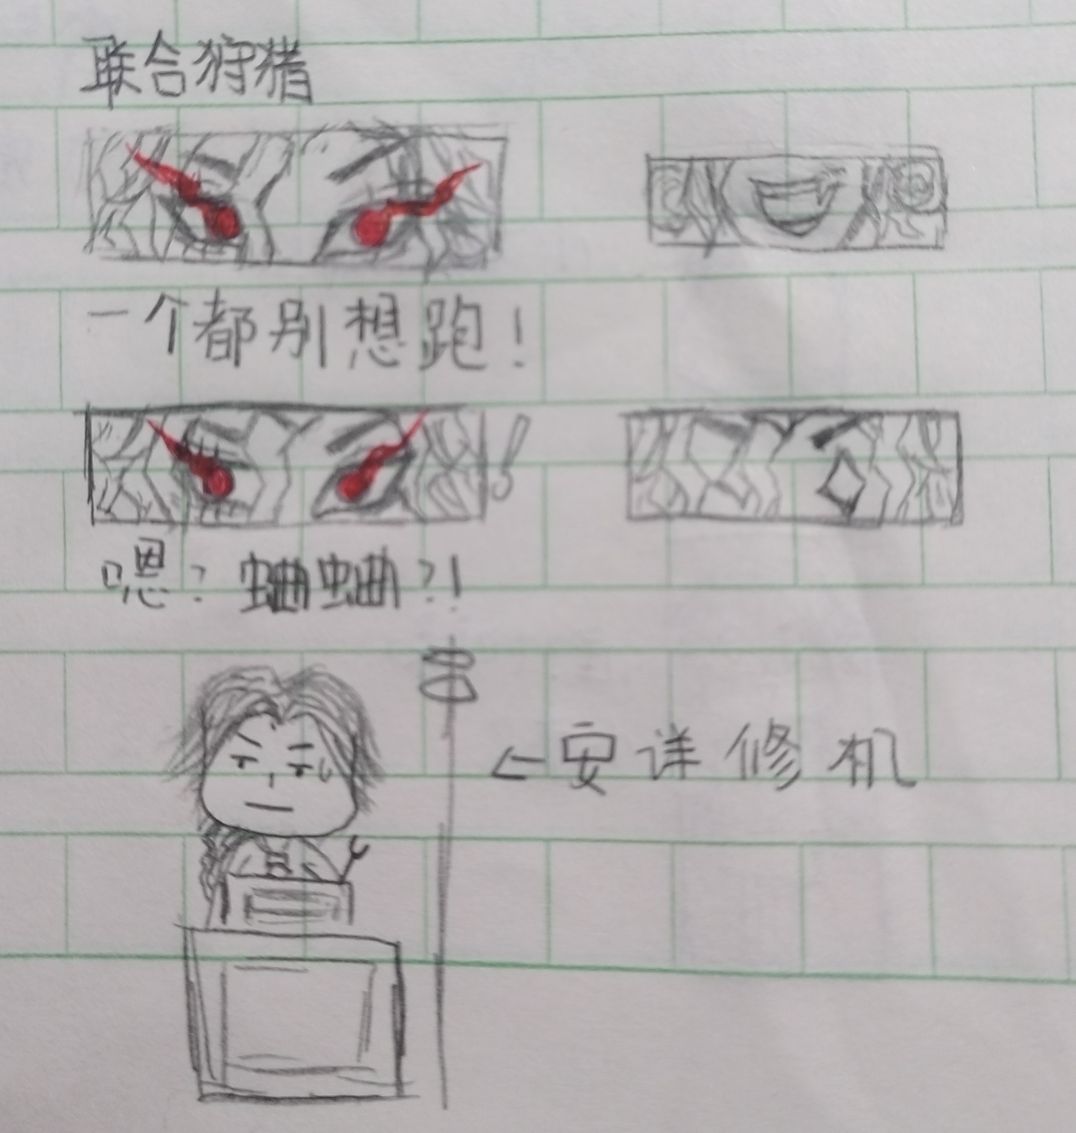 联合狩猎
一个都别想跑！
！
嗯？蛐蛐？！
←安详修机